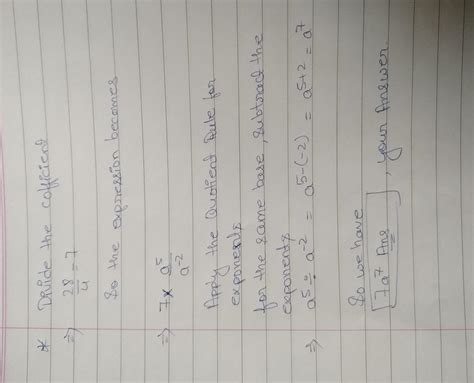 * Divide the cofficient
⇒ 28/4 = 7
So the expression becomes
⇒ 7 × a⁵/a⁻²
Apply the Quotient Rule for
exponents
for the same base, subtract the
exponents
⇒ a⁵ ÷ a⁻² = a⁵⁻⁽⁻²⁾ = a⁵⁺² = a⁷
So we have
7a⁷ Ans , your Answer